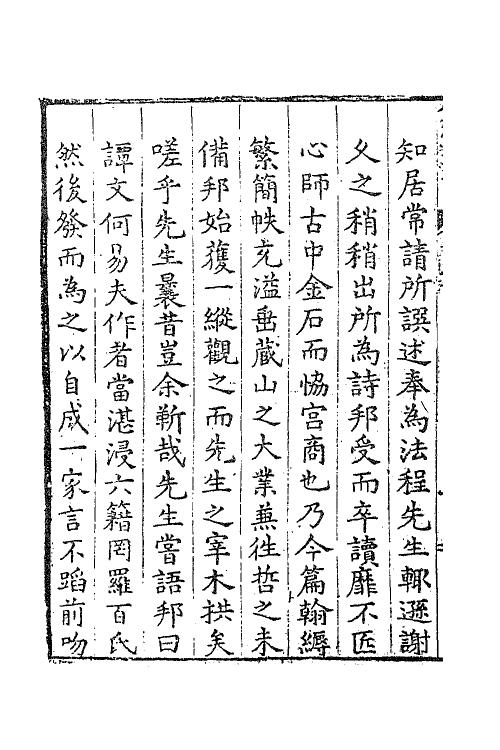 知居常請所譔述奉為法程先生輙遜謝
久之稍稍出所為詩邦受而卒讀靡不匠
心師古中金石而恊宫商也乃今篇翰縟
繁簡帙充溢垂蔵山之大業蕪徃哲之未
備邦始獲一縱觀之而先生之宰木拱矣
嗟乎先生曩昔豈余靳哉先生嘗語邦曰
譚文何易夫作者當湛浸六籍罔羅百氏
然後發而為之以自成一家言不蹈前吻